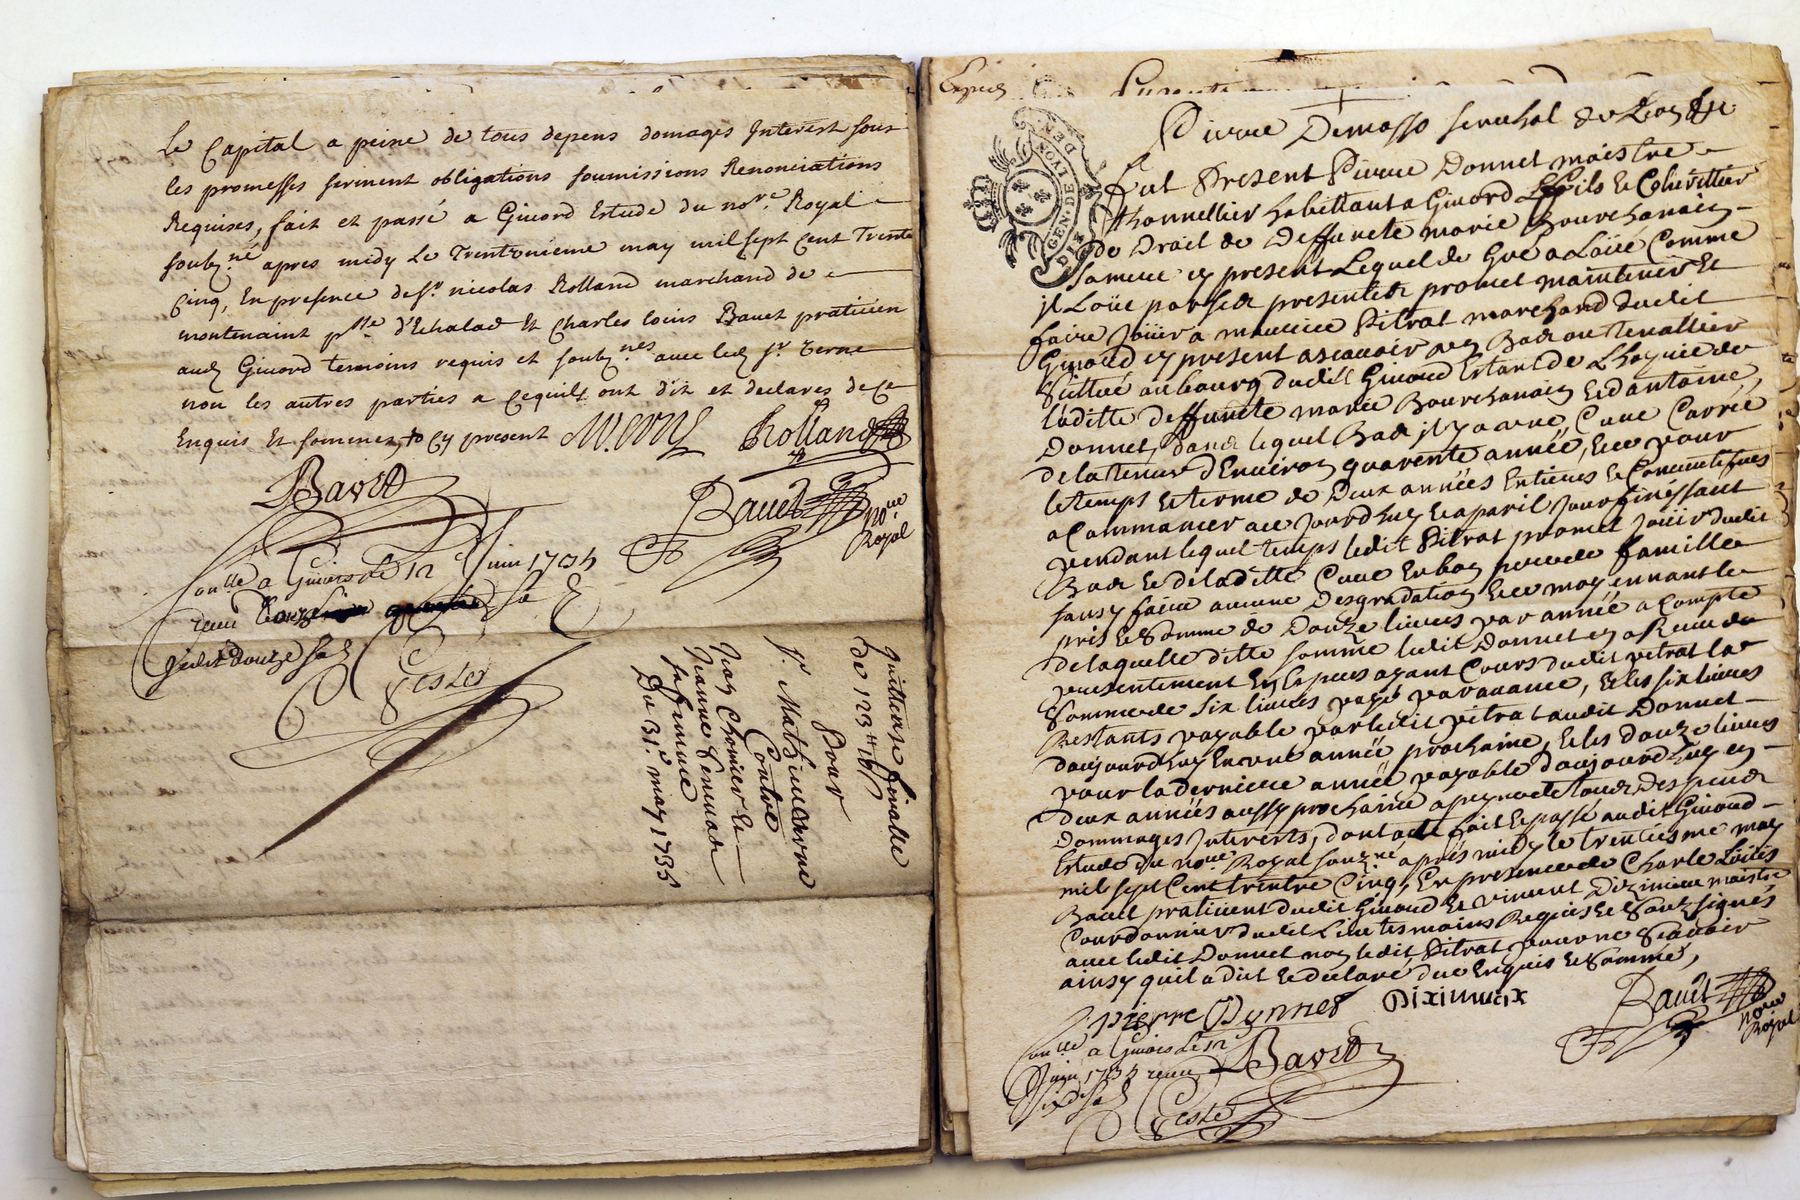 Le Capital a peine de tous depens domages Interest sous
les promesses serment obligations soumissions Renonciations
Requises, fait et passé a Givord Estude du no.re Royal
soub.né apres midy Le Trentunieme may mil sept Cent Trente
Cinq, En presence de s.r nicolas Rolland marchand de
montenaint p.sse d'Echalad Et Charles loüis Bauet praticien
aud Givord temoins requis et soub.nés auec led s.r Verne
non les autres parties a Cequils ont dit et declarés de Ce
Enquis Et sommez, Cy present M. Verne Rolland
Bavet
Bauet no.re Royal
Con.lle a Givors Le 12 Juin 1735
receu douze s
Geste
quittance finalle
de 123
Pour
s.r Mathieu Verne
Contre
Jean Chonier Et
Jeanne
sa femme
Du 31.e may 1735
Expedié
GEN. DE LYON
Pierre Demasso senechal de Lyon
fut Present Pierre Donnet maistre
thonnellier habittant a Givord fils Et Coheritier
de Droit de Deffuncte marie Bourchanain
sa mere cy present Lequel de Gré a Loüé Comme
jl Loüe par ses presentes promet maintenir Et
faire Joüir a maurice Pitrat marchand dudit
Givord cy present ascauoir
Scittué au bourg dudit Givord Estant de L'hoyrie de
laditte deffuncte marie Bourchanain Et d'antoine
Donnet, dans lequel Bas jl y a une Cuue Carrée
de la teneur d'Enuiron quarente année, Et ce pour
le temps Et terme de Deux années Entieres Et Consecutifues
a Commancer a ce Jourdhuy Et a pareil Jour finissant
pendant lequel temps ledit Pitrat promet Joüir dudit
Bas Et de laditte Cuue En bon pere de famille
sans y faire aucune Desgradation Et ce moyennant le
pris Et Somme de Douze liures par année a Compte
de laquelle ditte somme ledit Donnet en a Receu
presentement En Especes ayant Cours dudit pitrat la
Somme de six liures payé par auance, Et les six liures
Restants payable par ledit pitrat audit Donnet
daujourdhuy En une année prochaine, Et les douze liures
pour la derniere année payable daujourdhuy en
deux années aussy prochaine a peyne de tous Despends
Dommages Interests, dont acte fait Et passé audit Givord
Estude du no.re Royal Soubz.né apres midy le trentiesme may
mil sept Cent trentre Cinq, En presence de Charle Loüis
Bauet praticient dudit Givord Et vincent Dizimieu maistre
Courdonnier dudit Lieu tesmoins Requis Et Soubz signés
auec ledit Donnet non ledit Pitrat pour ne Scauoir
ainsy quil a dit Et declaré de ce Enquis Et Sommé,
Pierre Donnet Diximieix
Bauet no.re Royal
Con.lle a Givors Le 12
Juin 1735 receu Bavet
six s
Geste